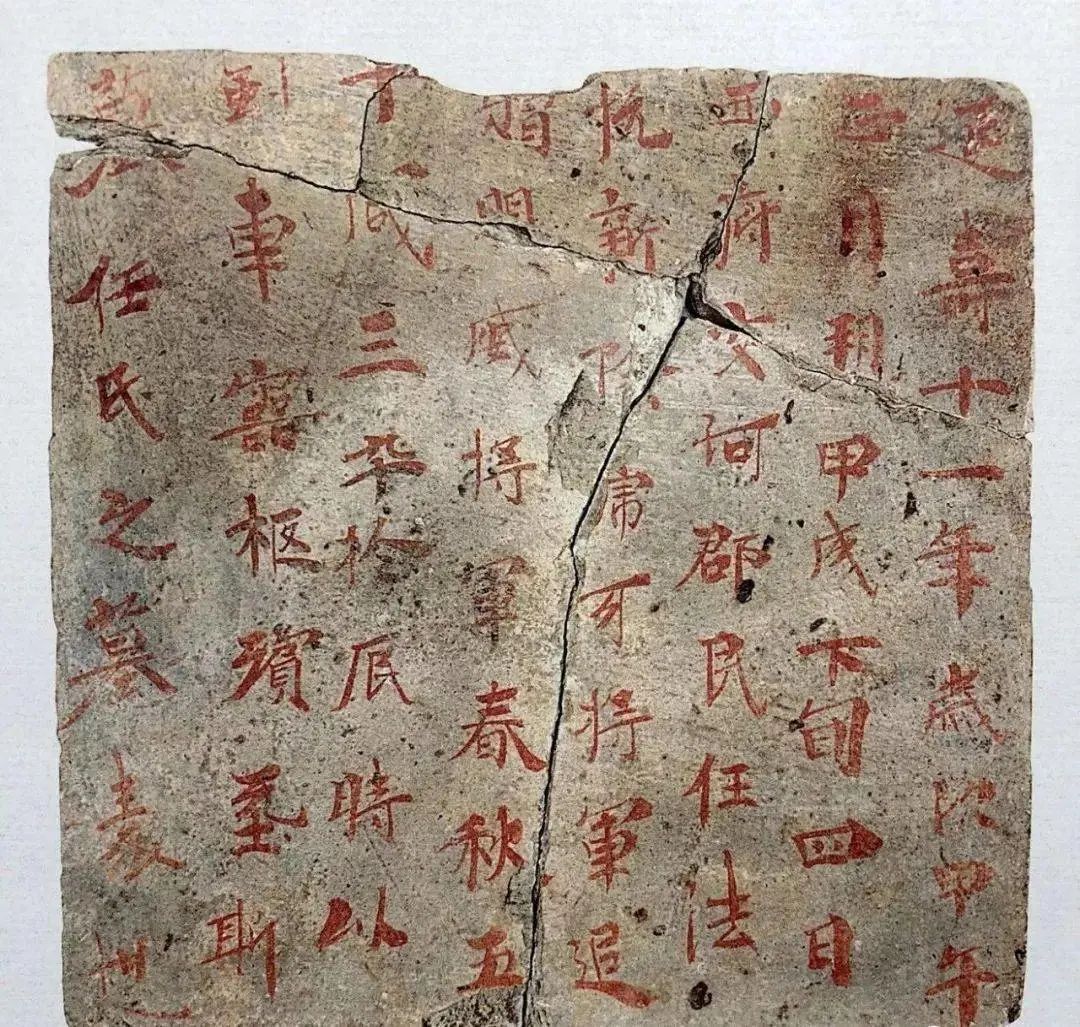 延壽十一年歲次甲午
正月朔甲戌下旬四日
西府交河郡民任法
悅新除虎牙將軍追
贈明威將軍春秋五
十三卒於辰時以
車靈柩殯葬斯
任氏之墓表也